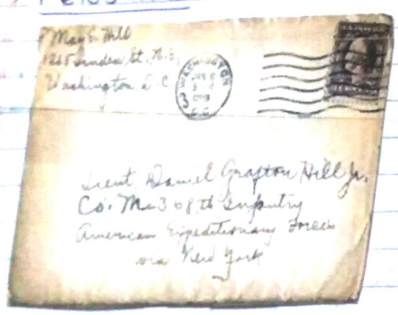 May E. Hill
1265 Linden St. N.E.
Washington D.C.
WASHINGTON
Lieut. Daniel Grafton Hill Jr.
Co. M. 368th Infantry
American Expeditionary Forces
via New York